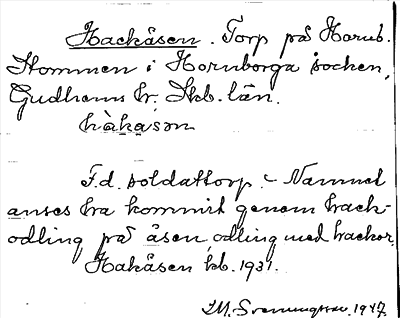 Hackåsen. Torp på Hornb.
Kommen i Hornborga socken,
Gudhems hr. Skb. län.
hàkasòn
F.d. soldattorp. - Namnet
anses ha kommit genom hack-
odling på åsen, odling med hackor.
Hakåsen kb. 1931.
1947